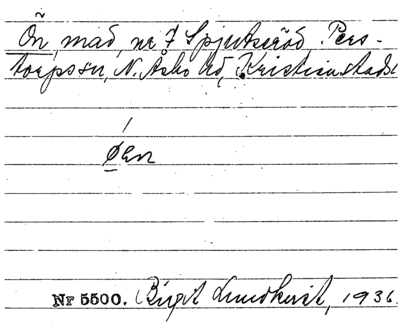 Ön, mad, nr 7 Spjutseröd, Pers-
torps sn, N. Åsbo hd, Kristianstads l
Øen
Nr 5500. Birgit Lundkvist, 1936.